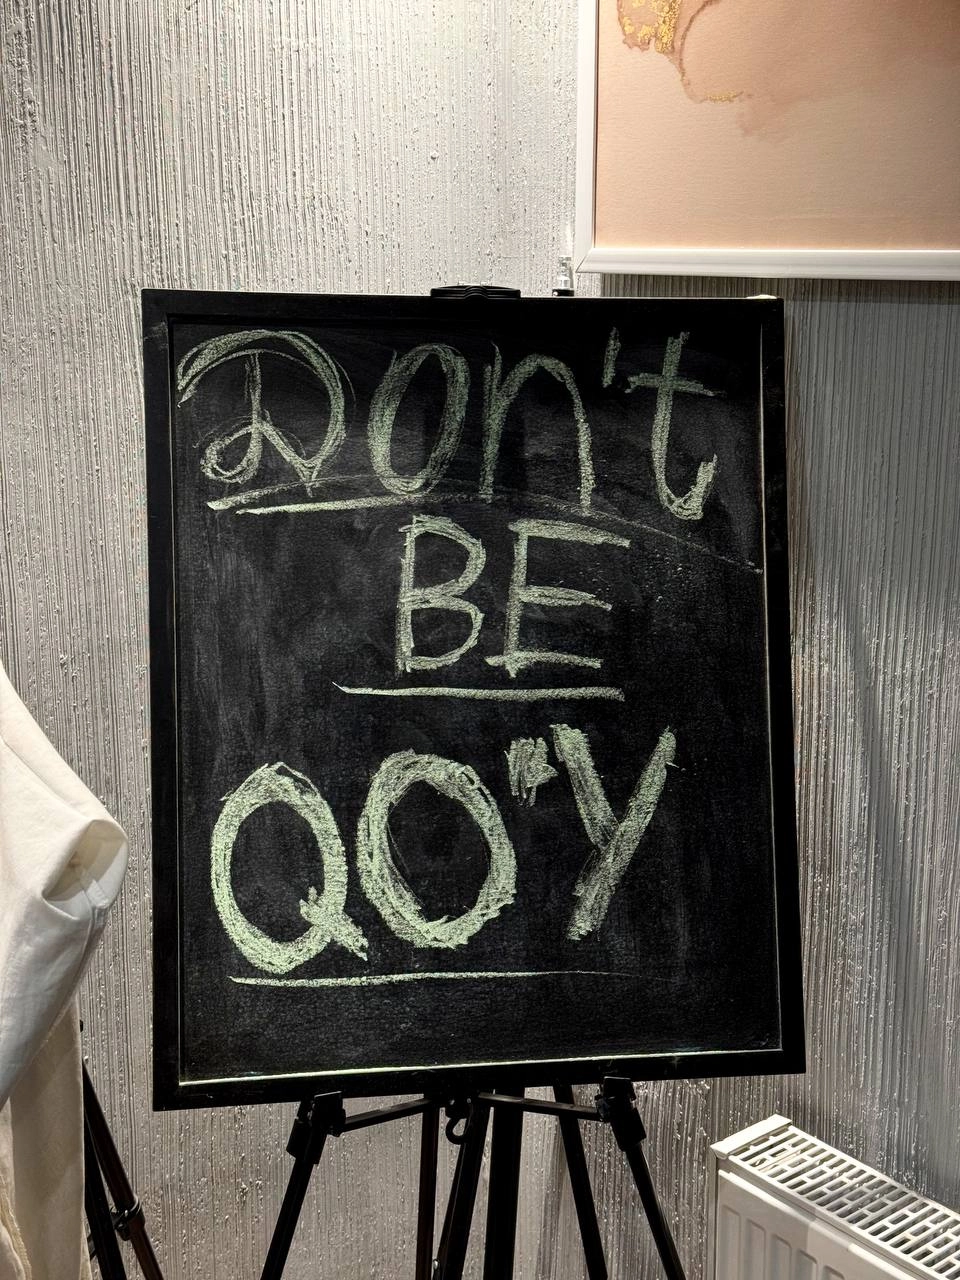 Don't
BE
QO'Y